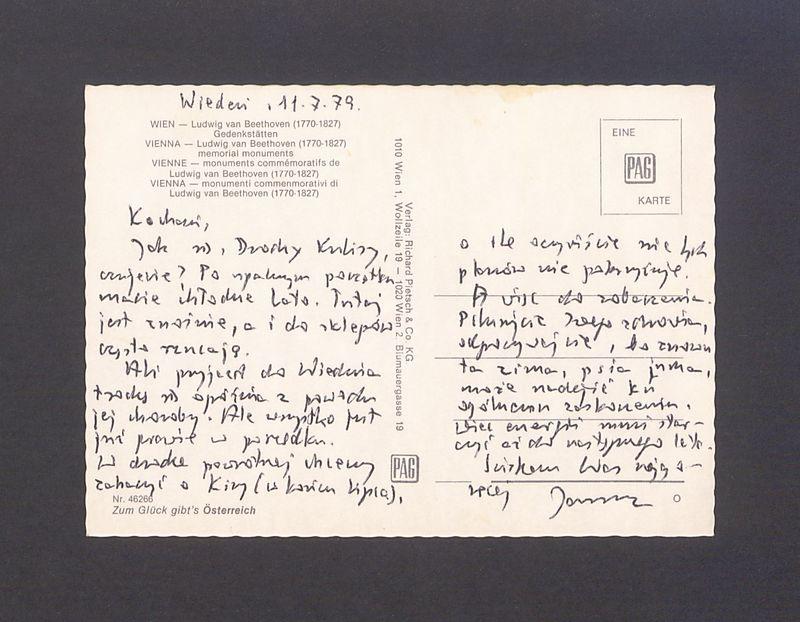 Wiedeń, 11.7.79.
WIEN — Ludwig van Beethoven (1770-1827)
Gedenkstätten
VIENNA — Ludwig van Beethoven (1770-1827)
memorial monuments
VIENNE — monuments commémoratifs de
Ludwig van Beethoven (1770-1827)
VIENNA — monumenti commenmorativi di
Ludwig van Beethoven (1770-1827)
Kochani,
Jak się, Drodzy
czujecie? Po upalnym początku
macie chłodne lato. Tutaj
jest znośnie, a i do sklepów
często
Ali przyjazd do Wiednia
trochę się opóźnia z powodu
jej choroby. Ale wszystko jest
już prawie w porządku.
W drodze powrotnej chcemy
zahaczyć o (w końcu lipca),
Nr. 46266
Zum Glück gibt's Österreich
Verlag: Richard Pietsch & Co. KG
1010 Wien 1, Wollzeile 19 — 1020 Wien 2, Blumauergasse 19
PAG
EINE
PAG
KARTE
o ile oczywiście nic tych
planów nie pokrzyżuje.
A więc do zobaczenia.
Pilnujcie swego zdrowia,
odpoczywajcie, bo znowu
ta zima, psia jucha,
może nadejść ku
ogólnemu zaskoczeniu.
Więc energii musi star-
czyć aż do następnego lata.
Ściskam Was najgo-
ręcej Janusz